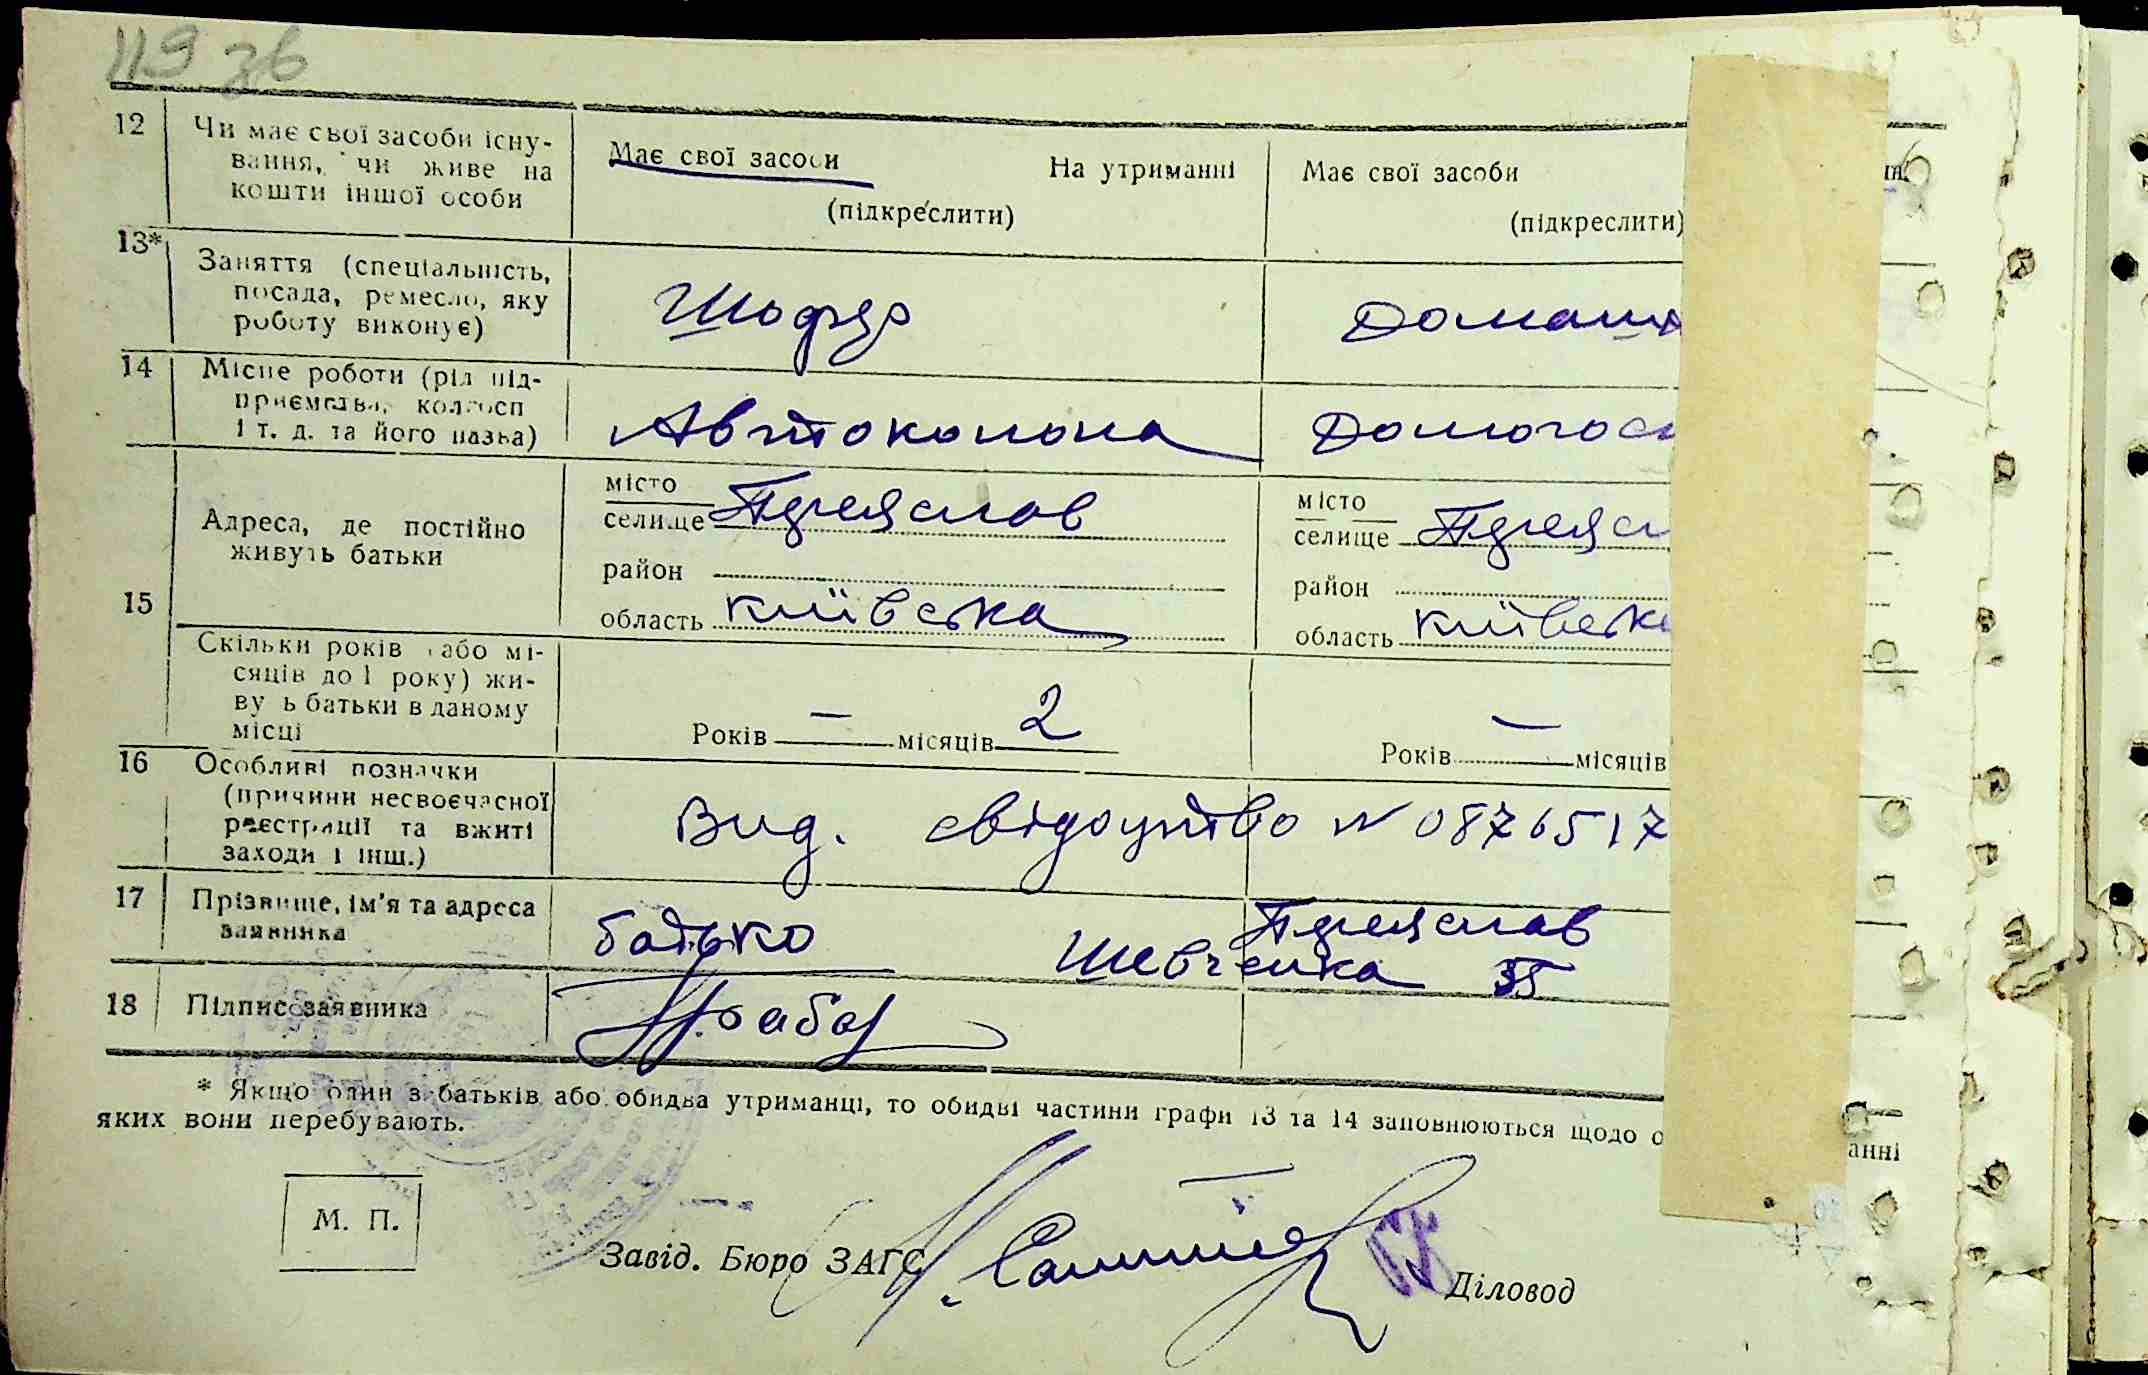 119 зв
12 Чи має свої засоби існу-
вання, чи живе на
кошти іншої особи
Має свої засоби На утриманні
(підкреслити)
Має свої засоби
(підкреслити)
13* Заняття (спеціальність,
посада, ремесло, яку
роботу виконує)
Шофер
Домашн
14 Місце роботи (рід під-
приємства, колгосп
і т. д. та його назва)
Автоколона
Домогос
15 Адреса, де постійно
живуть батьки
місто
селище Переяслав
район
область київська
місто
селище Переясл
район
область київськ
Скільки років або мі-
сяців до 1 року) жи-
ву ь батьки в даному
місці
Років — місяців 2
Років — місяців
16 Особливі позначки
(причини несвоєчасної
реєстрації та вжиті
заходи і інш.)
Вид. свідоцтво N 0876517
17 Прізвище, ім'я та адреса
заявника
батько Переяслав
Шевченка 35
18 Підпис заявника
* Якщо один з батьків або обидва утриманці, то обидві частини графи 13 та 14 заповнюються щодо о
анні
яких вони перебувають.
М. П.
Завід. Бюро ЗАГС
Діловод